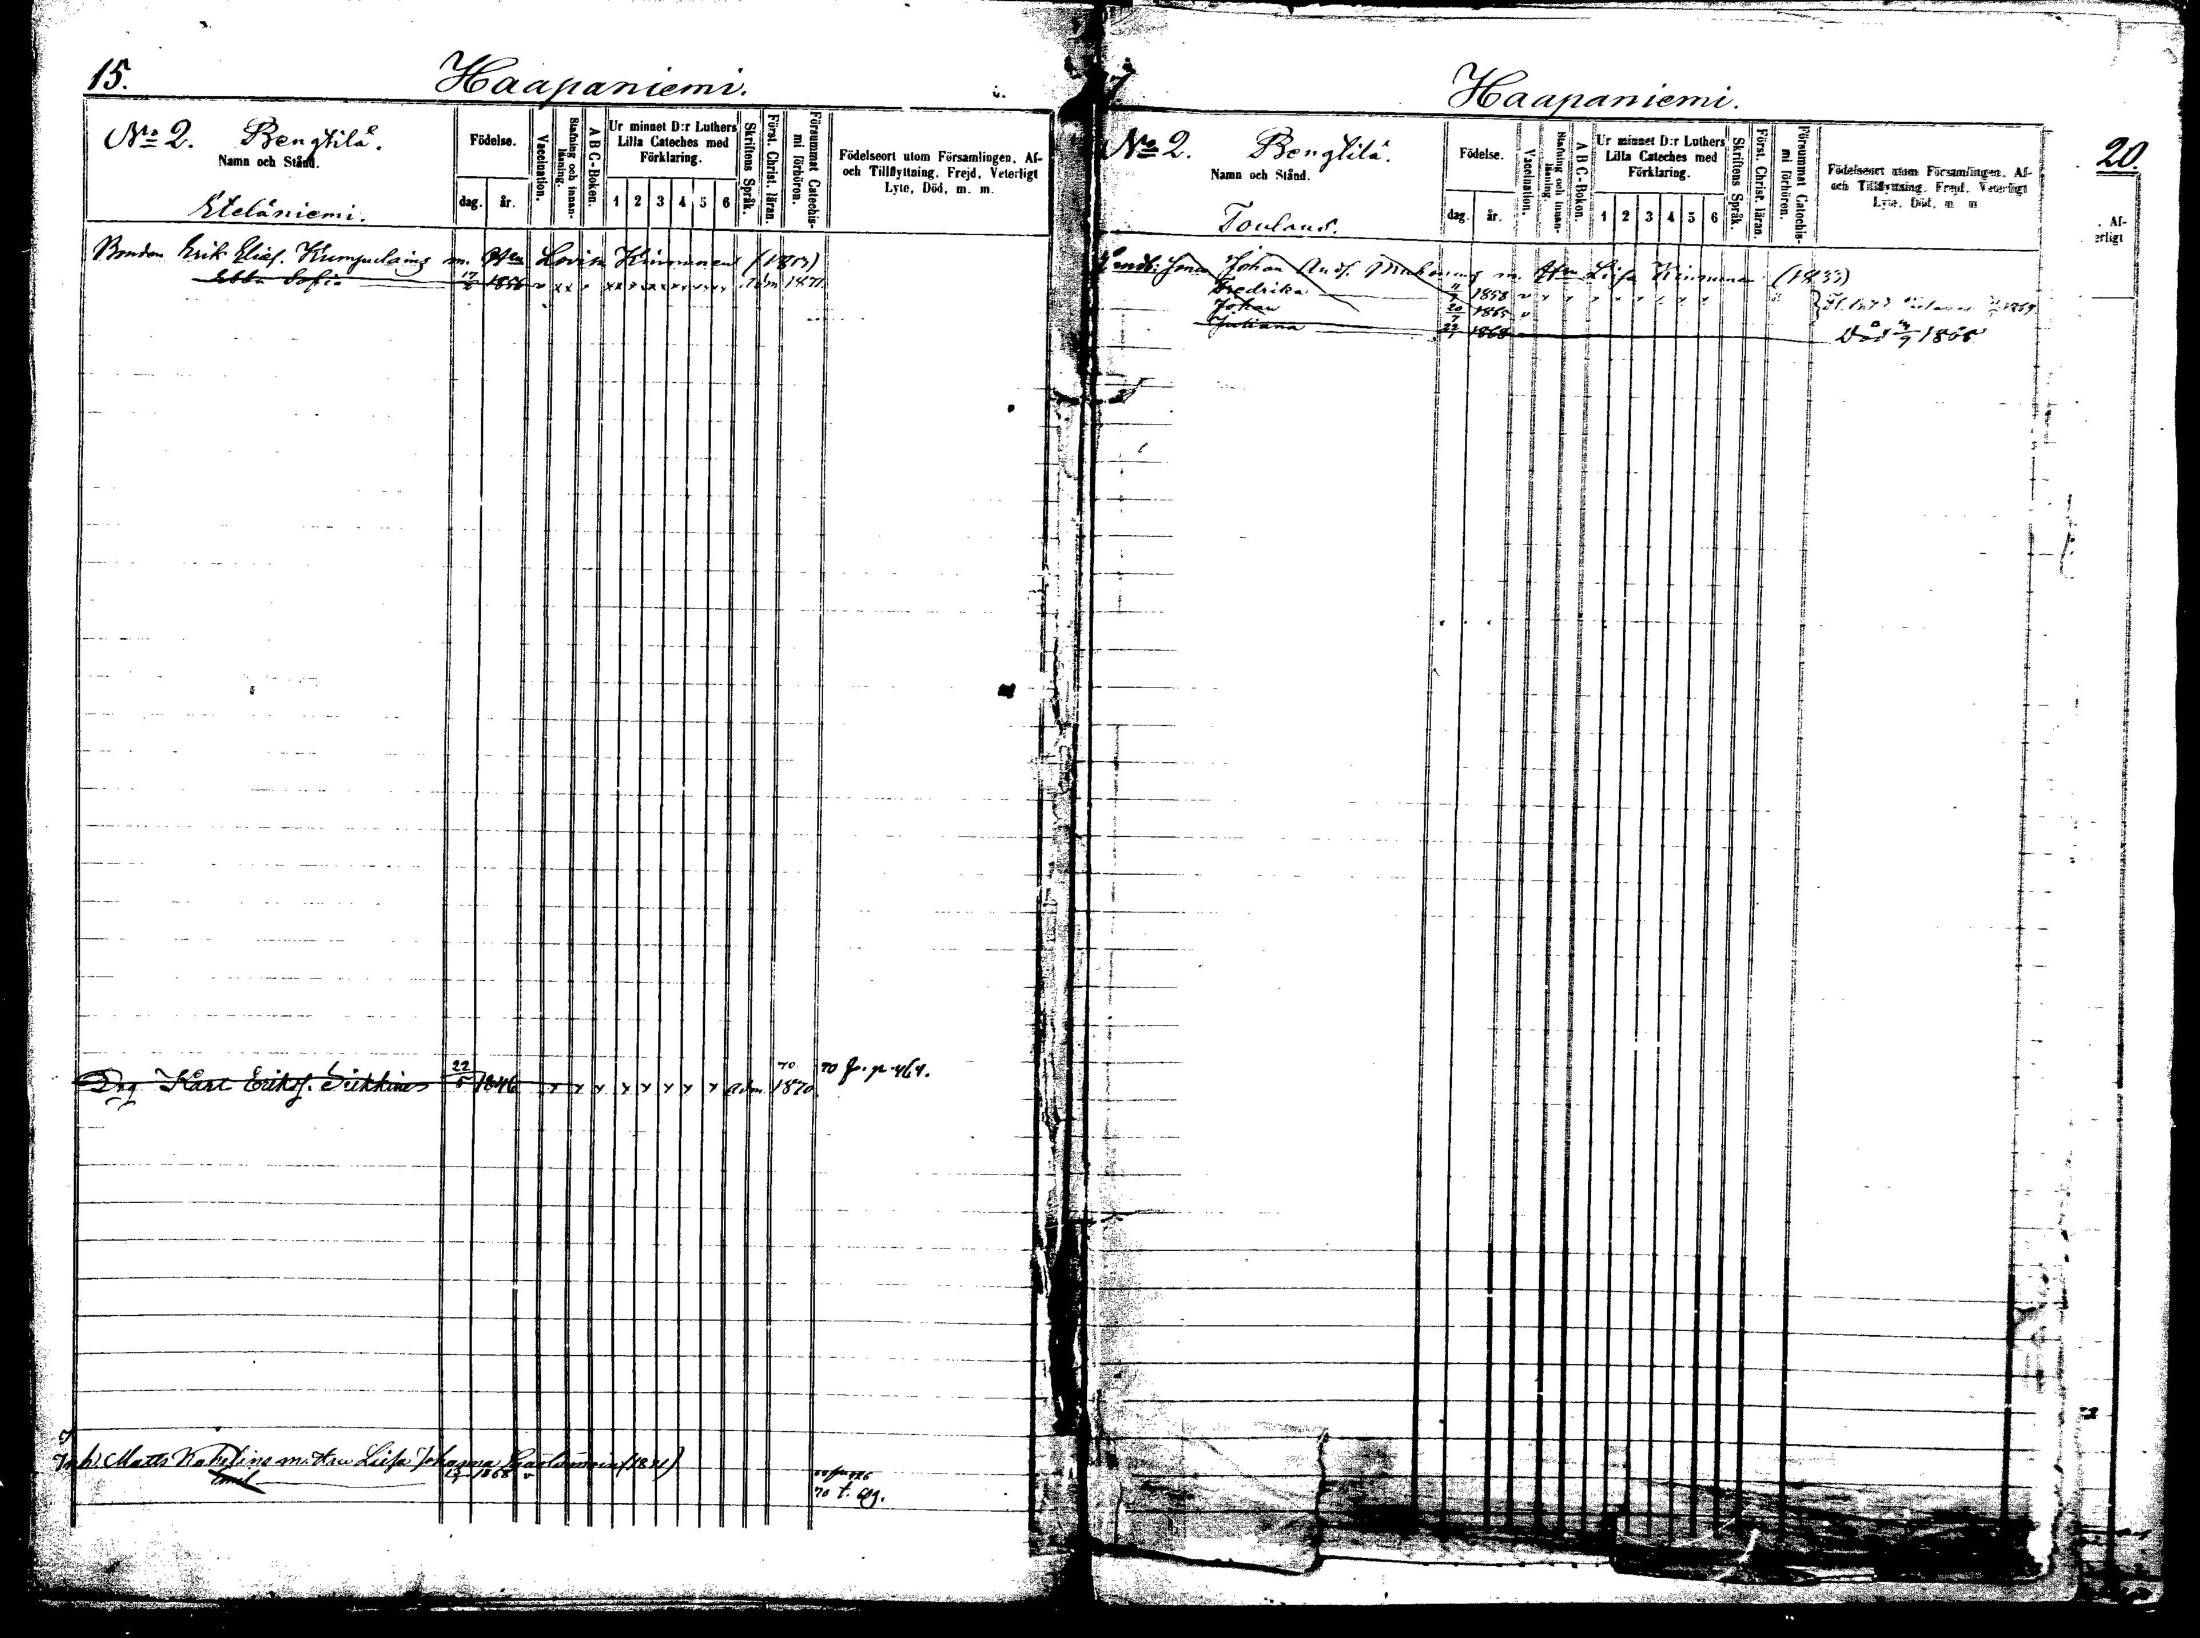 15.
Haapaniemi.
No 2. Bengtilä.
Namn och Stånd.
Eteläniemi.
Födelse.
dag. år.
Vaccination.
Stafning och innanläsning.
A B C-Boken.
Ur minnet D:r Luthers
Lilla Cateches med
Förklaring.
1 2 3 4 5 6
Skriftens Språk.
Först. Christ. läran.
Försummat Catechismi förhören.
Födelseort utom Församlingen. Af-
och Tillflyttning. Frejd, Veterligt
Lyte, Död, m. m.
Bonden Erik Eliaſ. Kumpulainę m. Hu Lovisa Kinnunen
Ebba Sofia 17 1856 v x x adm 1871
Drg Karl Eriksſ. 22/5 1846 x x x x x x x x adm 1870 70 fr. p 464.
Matts m. Hru Liisa Johanna
1868 v
70 t.
Haapaniemi.
20.
No 2. Bengtilä.
Namn och Stånd.
Toulans.
Födelse.
dag. år.
Vaccination.
Stafning och innanläsning.
A B C-Boken.
Ur minnet D:r Luthers
Lilla Cateches med
Förklaring.
1 2 3 4 5 6
Skriftens Språk.
Först. Christ. läran.
Försummat Catechismi förhören.
Födelseort utom Församlingen. Af-
och Tillflyttning. Frejd, Veterligt
Lyte, Död, m. m.
Af-
erligt
Johan Andſ. m. Hu Liisa Kinnunen (1833)
Fredrika 1858 v
Johan 20/7 1865 v
Juliana 22 1868 Död 1868